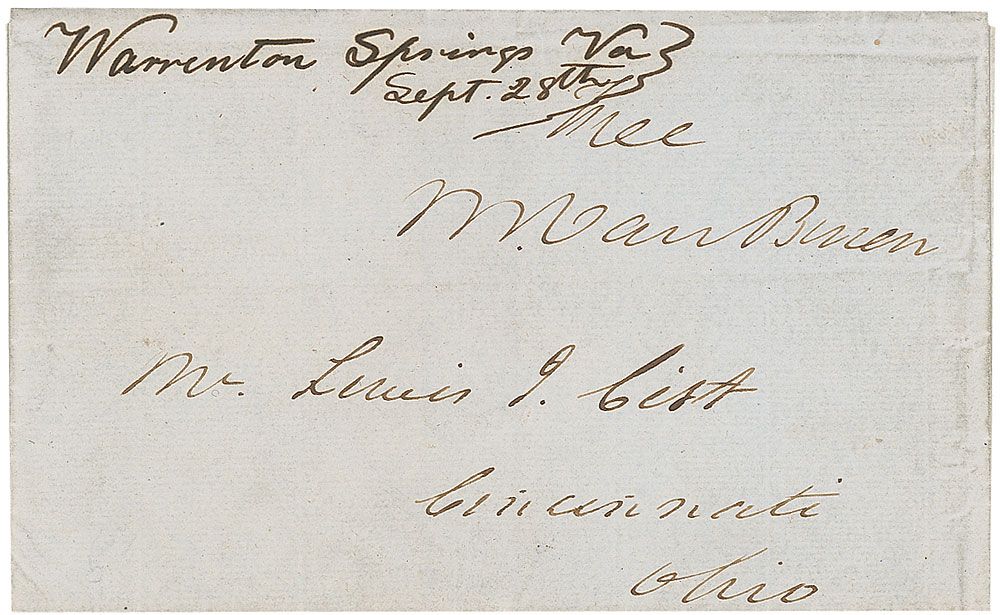 Warrenton Springs Va }
Sept. 28th }
Free
M Van Buren
Mr. Lewis J. Cist
Cincinnati
Ohio